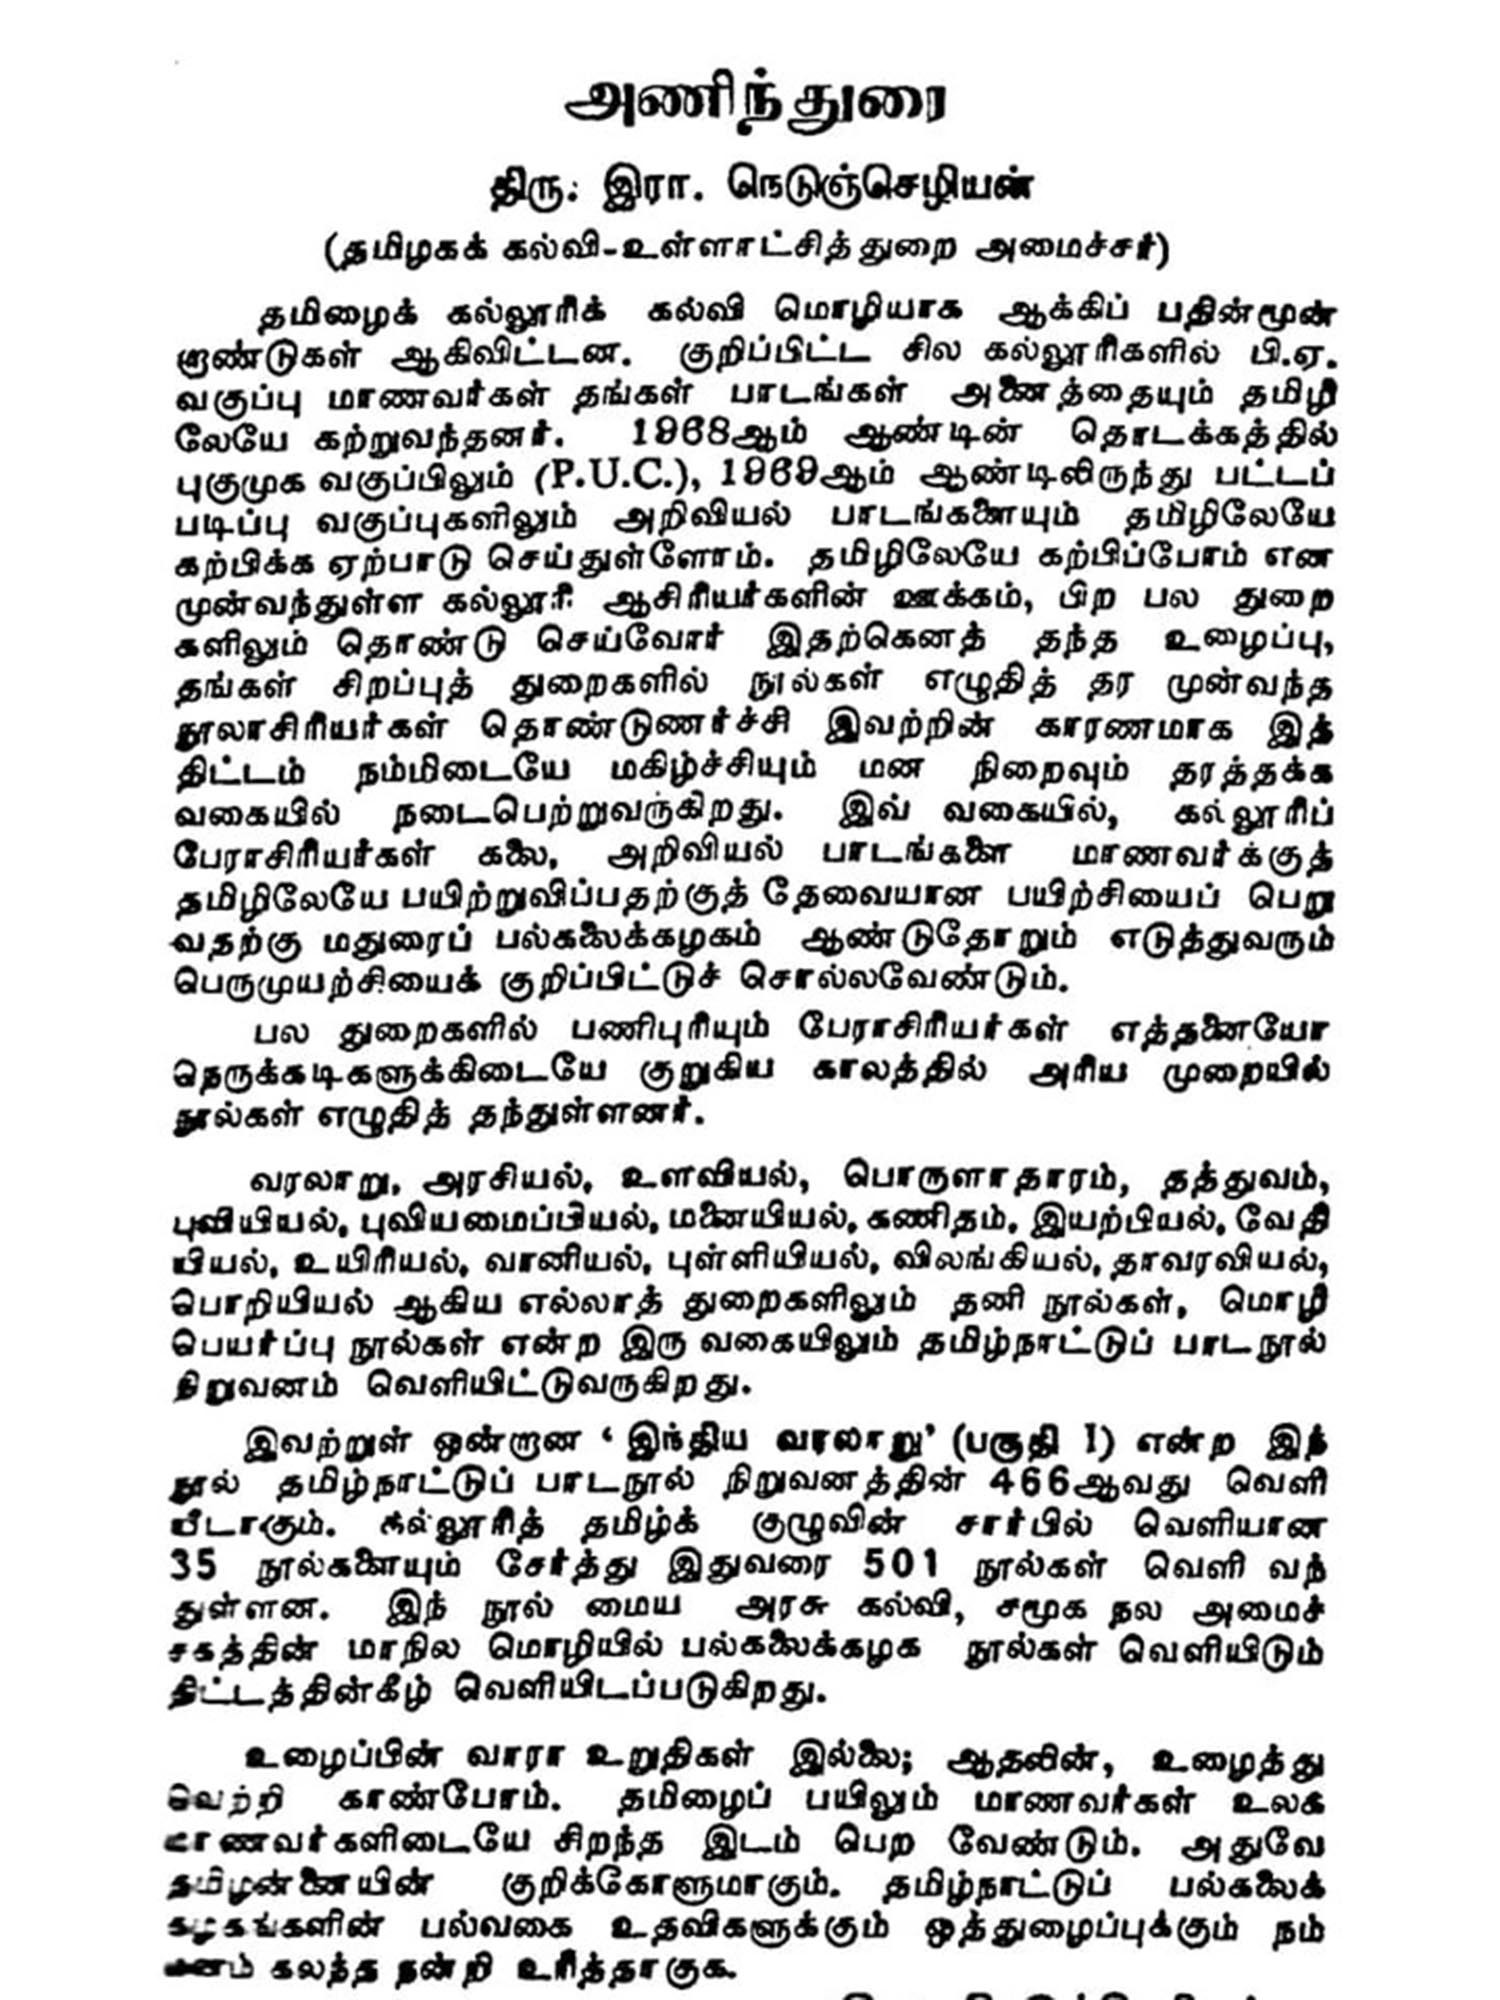 அணிந்துரை
திரு. இரா. நெடுஞ்செழியன்
(தமிழகக் கல்வி-உள்ளாட்சித்துறை அமைச்சர்)
தமிழைக் கல்லூரிக் கல்வி மொழியாக ஆக்கிப் பதின்மூன்
றாண்டுகள் ஆகிவிட்டன. குறிப்பிட்ட சில கல்லூரிகளில் பி.ஏ.
வகுப்பு மாணவர்கள் தங்கள் பாடங்கள் அனைத்தையும் தமிழி
லேயே கற்றுவந்தனர். 1968ஆம் ஆண்டின் தொடக்கத்தில்
புகுமுக வகுப்பிலும் (P.U.C.), 1969ஆம் ஆண்டிலிருந்து பட்டப்
படிப்பு வகுப்புகளிலும் அறிவியல் பாடங்களையும் தமிழிலேயே
கற்பிக்க ஏற்பாடு செய்துள்ளோம். தமிழிலேயே கற்பிப்போம் என
முன்வந்துள்ள கல்லூரி ஆசிரியர்களின் ஊக்கம், பிற பல துறை
களிலும் தொண்டு செய்வோர் இதற்கெனத் தந்த உழைப்பு,
தங்கள் சிறப்புத் துறைகளில் நூல்கள் எழுதித் தர முன்வந்த
நூலாசிரியர்கள் தொண்டுணர்ச்சி இவற்றின் காரணமாக இத்
திட்டம் நம்மிடையே மகிழ்ச்சியும் மன நிறைவும் தரத்தக்க
வகையில் நடைபெற்றுவருகிறது. இவ் வகையில், கல்லூரிப்
பேராசிரியர்கள் கலை, அறிவியல் பாடங்களை மாணவர்க்குத்
தமிழிலேயே பயிற்றுவிப்பதற்குத் தேவையான பயிற்சியைப் பெறு
வதற்கு மதுரைப் பல்கலைக்கழகம் ஆண்டுதோறும் எடுத்துவரும்
பெருமுயற்சியைக் குறிப்பிட்டுச் சொல்லவேண்டும்.
பல துறைகளில் பணிபுரியும் பேராசிரியர்கள் எத்தனையோ
நெருக்கடிகளுக்கிடையே குறுகிய காலத்தில் அரிய முறையில்
நூல்கள் எழுதித் தந்துள்ளனர்.
வரலாறு, அரசியல், உளவியல், பொருளாதாரம், தத்துவம்,
புவியியல், புவியமைப்பியல், மனையியல், கணிதம், இயற்பியல், வேதி
யியல், உயிரியல், வானியல், புள்ளியியல், விலங்கியல், தாவரவியல்,
பொறியியல் ஆகிய எல்லாத் துறைகளிலும் தனி நூல்கள், மொழி
பெயர்ப்பு நூல்கள் என்ற இரு வகையிலும் தமிழ்நாட்டுப் பாடநூல்
நிறுவனம் வெளியிட்டுவருகிறது.
இவற்றுள் ஒன்றான ‘இந்திய வரலாறு’ (பகுதி I) என்ற இந்
நூல் தமிழ்நாட்டுப் பாடநூல் நிறுவனத்தின் 466ஆவது வெளி
யீடாகும். கல்லூரித் தமிழ்க் குழுவின் சார்பில் வெளியான
35 நூல்களையும் சேர்த்து இதுவரை 501 நூல்கள் வெளி வந்
துள்ளன. இந் நூல் மைய அரசு கல்வி, சமூக நல அமைச்
சகத்தின் மாநில மொழியில் பல்கலைக்கழக நூல்கள் வெளியிடும்
திட்டத்தின்கீழ் வெளியிடப்படுகிறது.
உழைப்பின் வாரா உறுதிகள் இல்லை; ஆதலின், உழைத்து
வெற்றி காண்போம். தமிழைப் பயிலும் மாணவர்கள் உலக
மாணவர்களிடையே சிறந்த இடம் பெற வேண்டும். அதுவே
தமிழன்னையின் குறிக்கோளுமாகும். தமிழ்நாட்டுப் பல்கலைக்
கழகங்களின் பல்வகை உதவிகளுக்கும் ஒத்துழைப்புக்கும் நம்
மனம் கலந்த நன்றி உரித்தாகுக.